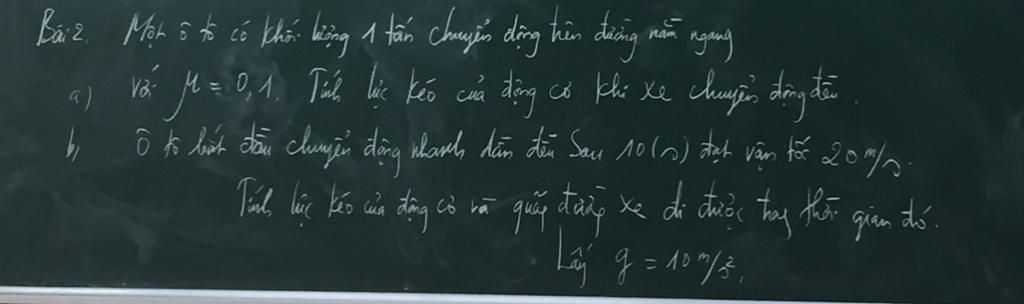 Bài 2. Một ô tô có khối lượng 1 tấn chuyển động trên đường nằm ngang
a) với μ = 0,1. Tính lực kéo của động cơ khi xe chuyển động đều.
b) Ô tô bắt đầu chuyển động nhanh dần đều sau 10(s) đạt vận tốc 20 m/s.
Tính lực kéo của động cơ và quãng đường xe đi được trong thời gian đó.
Lấy g = 10 m/s².